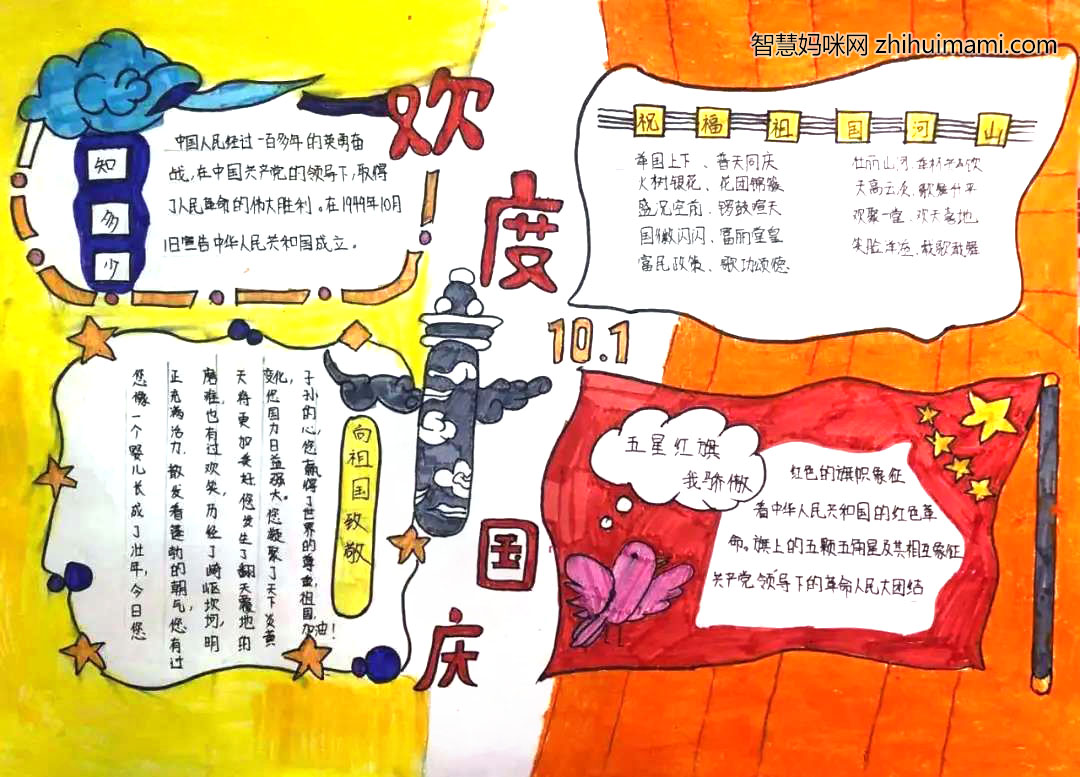 智慧妈咪网 zhihuimami.com
欢度国庆
10.1
知多少
中国人民经过一百多年的英勇奋
战,在中国共产党的领导下,取得
了人民革命的伟大胜利。在1949年10月
1日宣告中华人民共和国成立。
祝福祖国河山
举国上下、普天同庆
火树银花、花团锦簇
盛况空前、锣鼓喧天
国徽闪闪、富丽堂皇
富民政策、歌功颂德
壮丽山河,
天高云淡,歌舞升平
欢聚一堂,欢天喜地
载歌载舞
向祖国致敬
您像一个婴儿长成了壮年,今日您
正充满活力,散发着蓬勃的朝气,您有过
磨难也有过欢笑,历经了崎岖坎坷,明
天将更加美好,您发生了翻天覆地的
变化,您国力日益强大。您凝聚了天下炎黄
子孙的心,您赢得了世界的尊重,祖国,加油!
五星红旗
我骄傲
红色的旗帜象征
着中华人民共和国的红色革
命。旗上的五颗五角星及其相互象征
共产党领导下的革命人民大团结